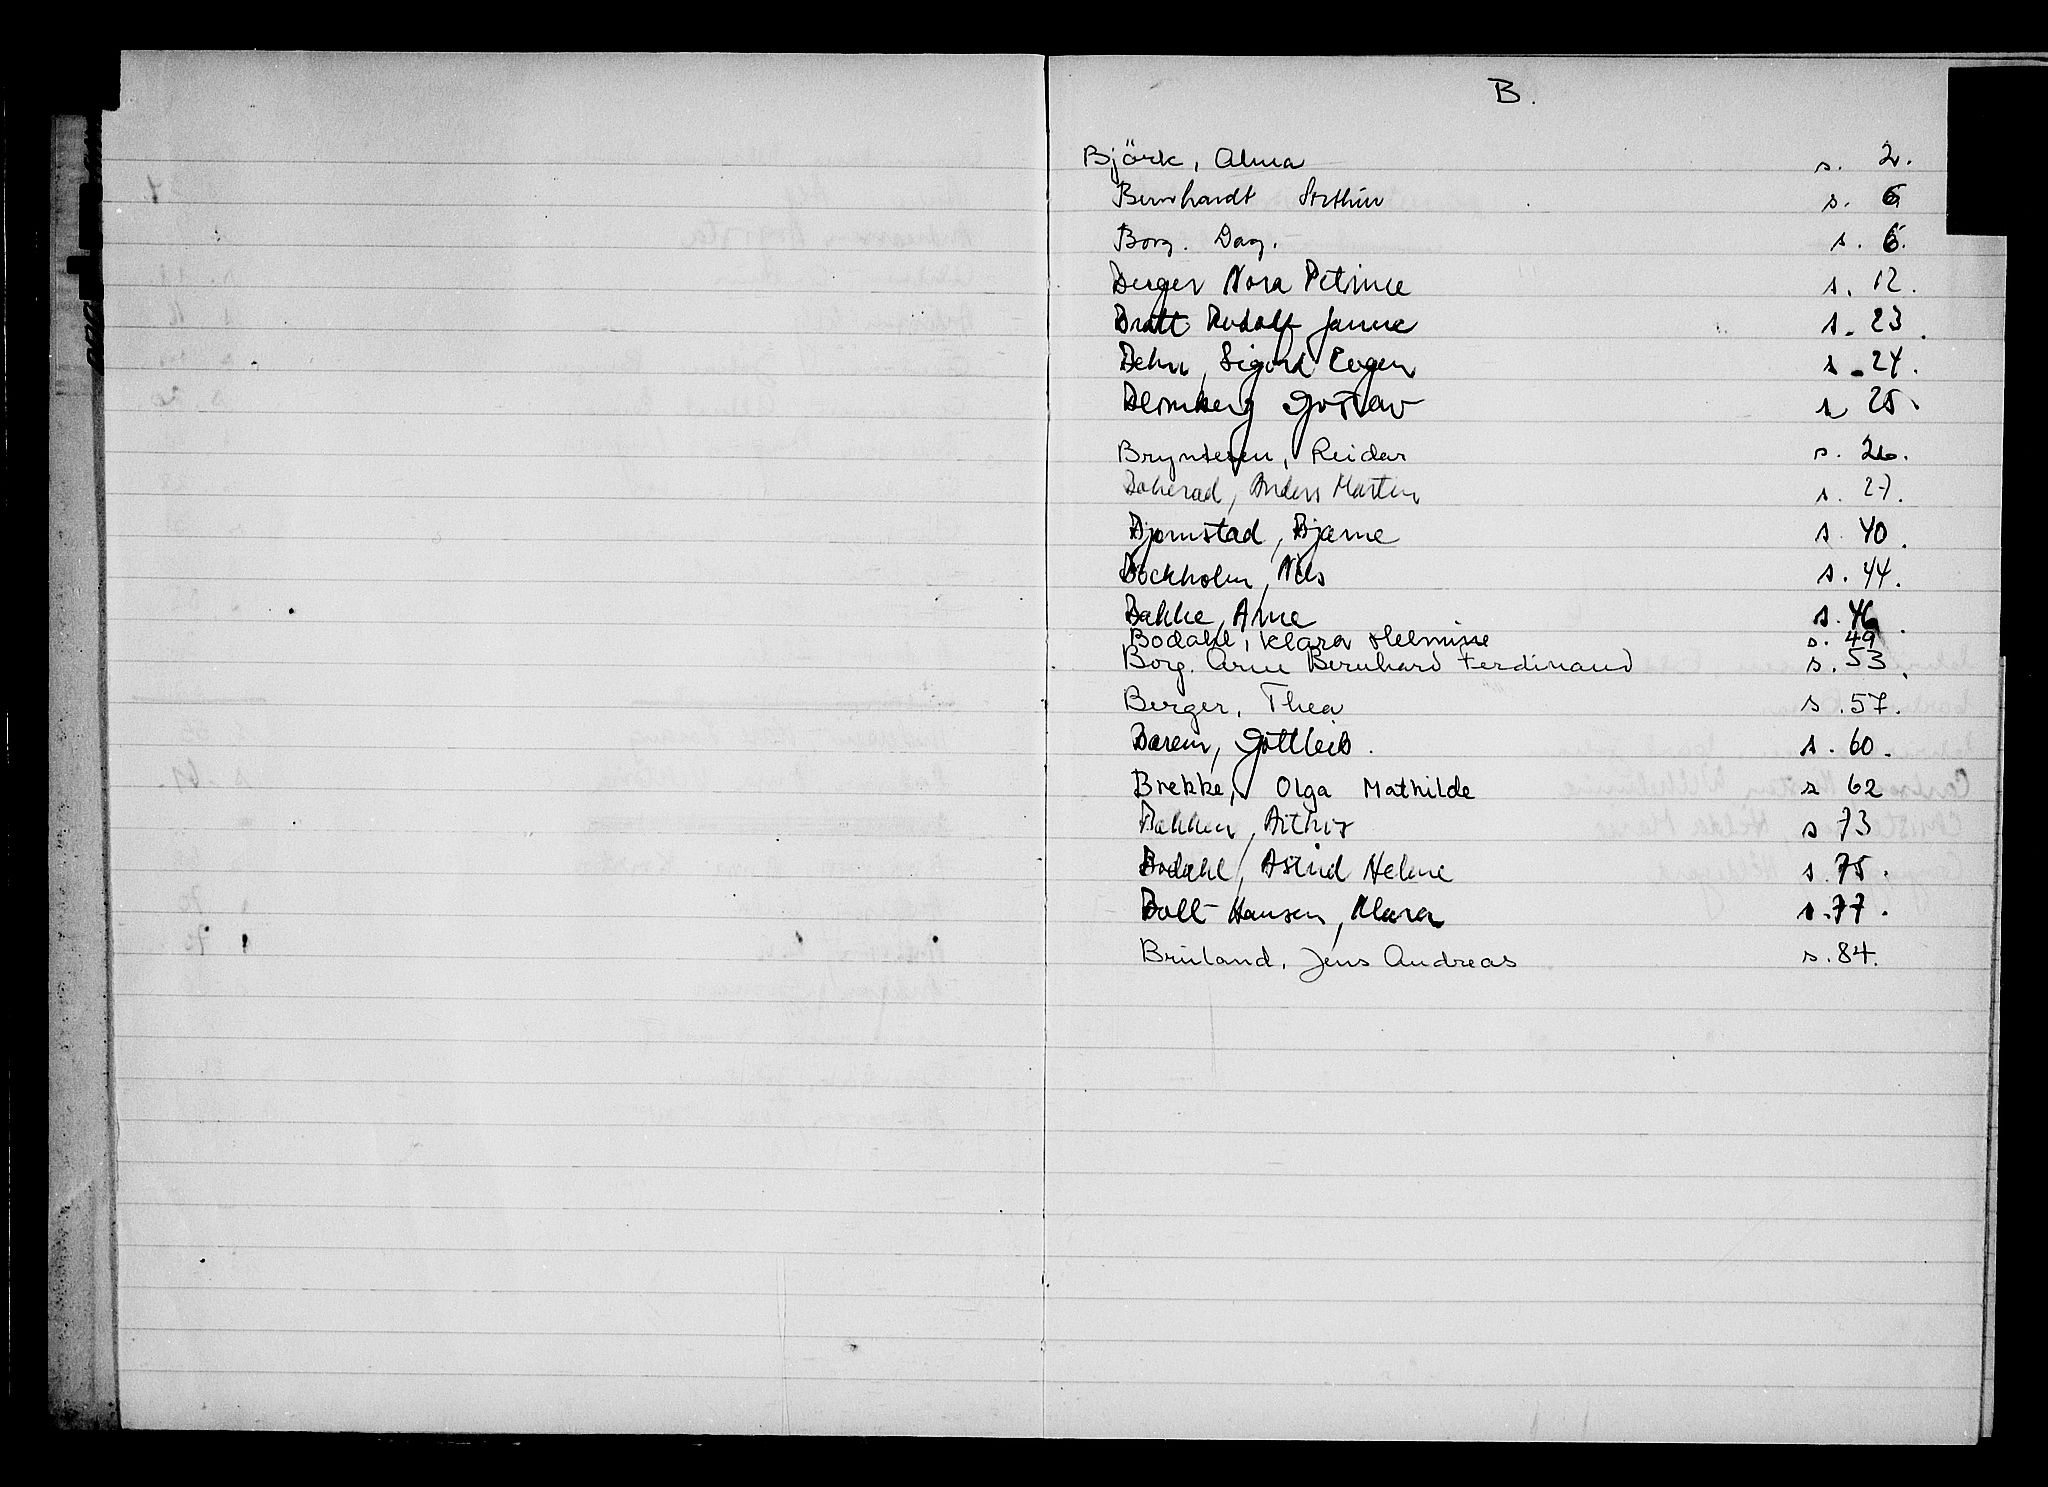 B.
Björk, Alma s. 2.
Bernhardt Arthur s. 6
Borg. Dag. s. 6.
Berger Nora Petrine s. 12.
Bratt Rudolf Janne s. 23.
Behn, Sigurd Eugen s. 24.
Blomberg Gustav s. 25.
Bryntesen, Reidar s. 26.
Anders Martin s. 27.
Bjørnstad, Bjarne s. 40.
Bockholm, Nils s. 44.
Bakke, Arne s. 46.
Bodahl, Klara Helmine s. 49
Borg. Arne Bernhard Ferdinand s. 53.
Berger, Thea s. 57.
Gottleib. s. 60.
Brekke, Olga Mathilde s 62
Bakken, Arthur s 73
Bodahl, Astrid Helene s. 75.
Boll-Hansen, Klara s. 77.
Jens Andreas s. 84.